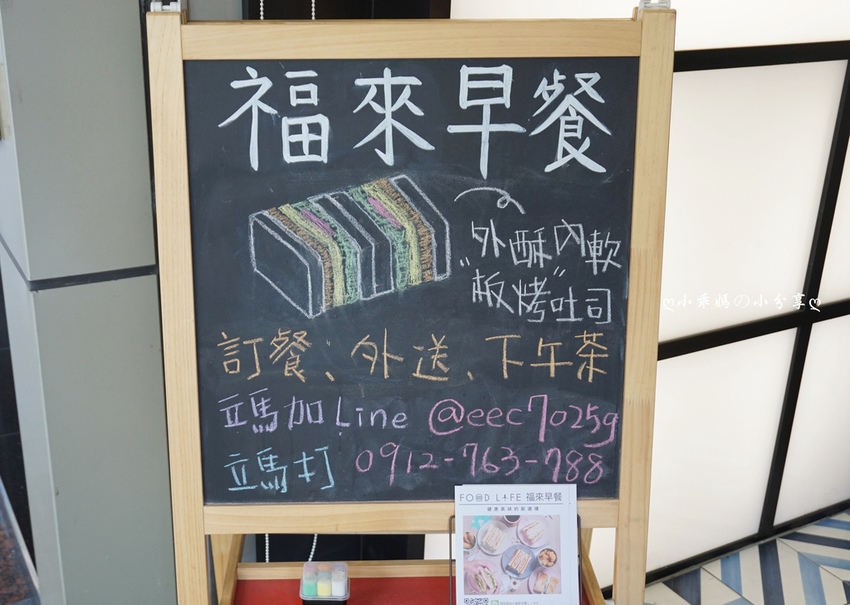 福來早餐
外酥內軟
"板烤"吐司
訂餐、外送、下午茶
立馬加Line @eec7025g
立馬打 0912-763-788
FOOD LIFE 福來早餐
ღ小乘媽の小分享ღ